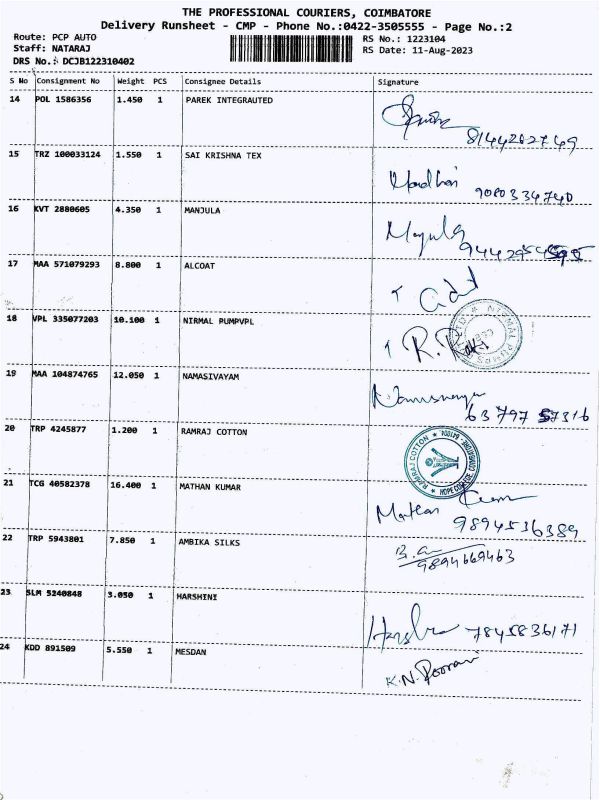 THE PROFESSIONAL COURIERS, COIMBATORE
Delivery Runsheet - CMP - Phone No.:0422-3505555 - Page No.:2
Route: PCP AUTO
RS No.: 1223104
Staff: NATARAJ
RS Date: 11-Aug-2023
DRS No.: DCJB122310402
S No Consignment No Weight PCS Consignee Details Signature
14 POL 1586356 1.450 1 PAREK INTEGRAUTED
15 TRZ 100033124 1.550 1 SAI KRISHNA TEX
9080334740
16 KVT 2880605 4.350 1 MANJULA
17 MAA 571079293 8.800 1 ALCOAT
18 VPL 335077203 10.100 1 NIRMAL PUMPVPL
R. Raki
19 MAA 104874765 12.050 1 NAMASIVAYAM
63797 57316
20 TRP 4245877 1.200 1 RAMRAJ COTTON
RAMRAJ COTTON
21 TCG 40582378 16.400 1 MATHAN KUMAR
Mathan
9894536389
22 TRP 5943801 7.850 1 AMBIKA SILKS
9894669463
23 SLM 5240848 3.050 1 HARSHINI
7845836171
24 KDD 891509 5.550 1 MESDAN
K.N. Poorani